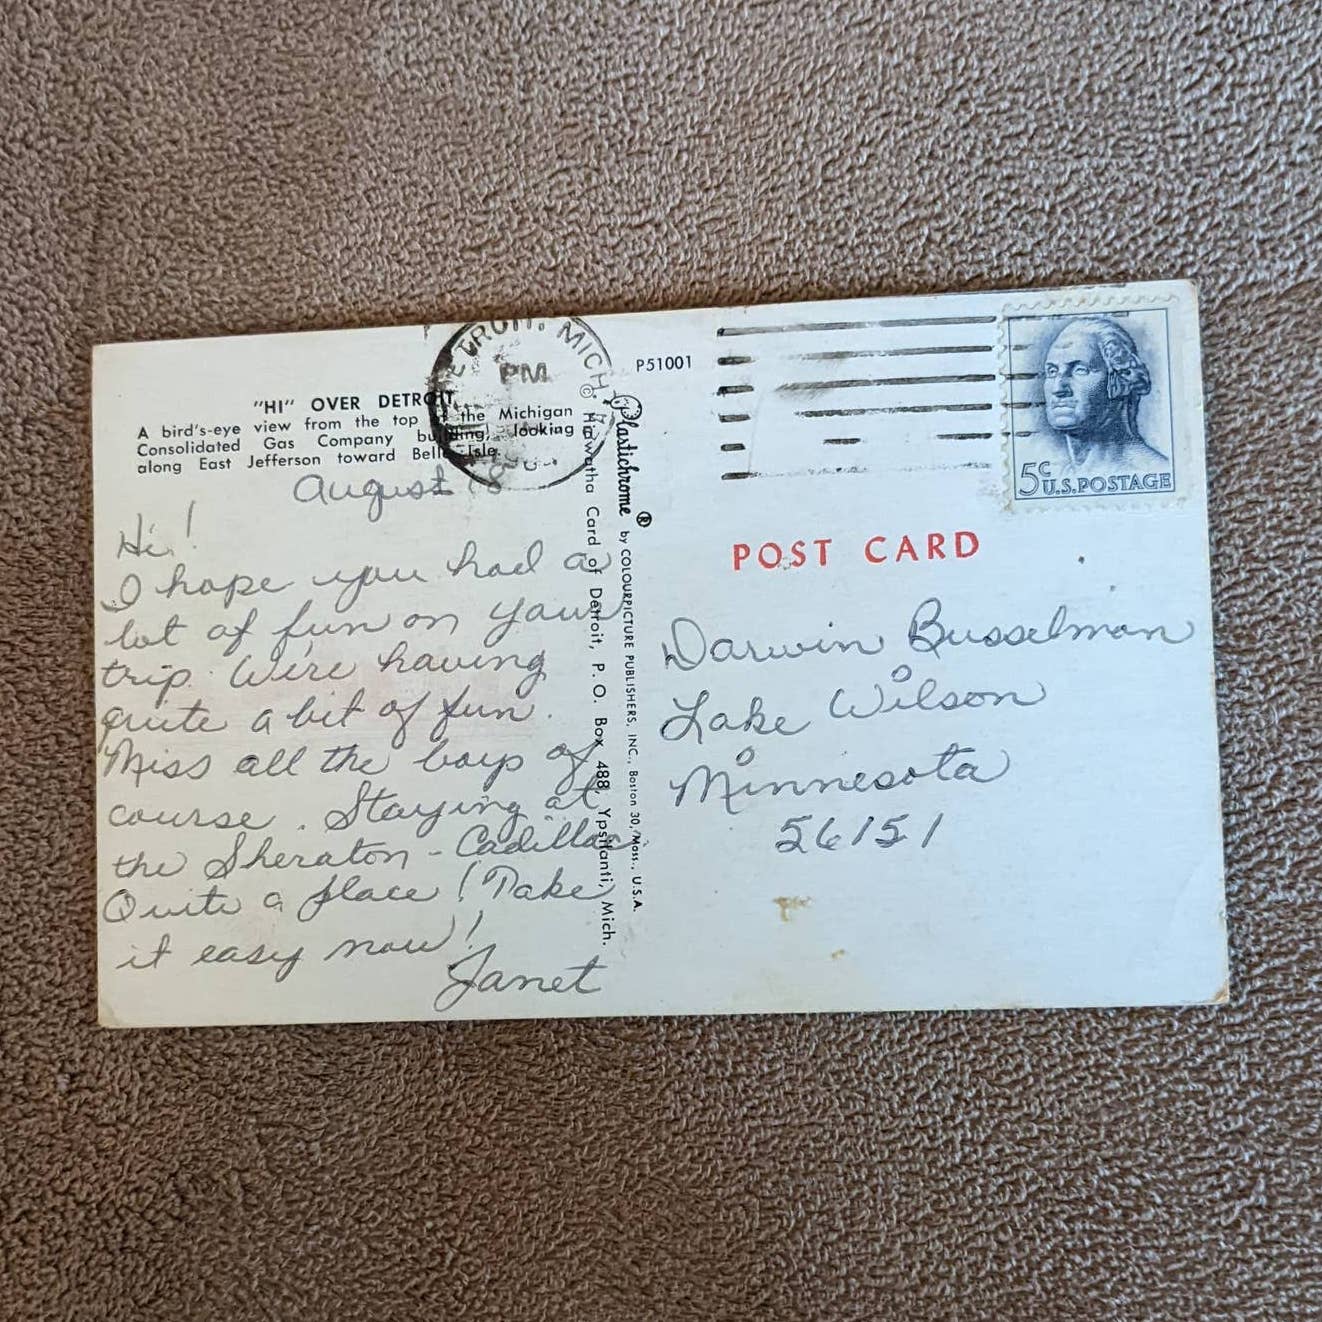 "HI" OVER DETROIT
A bird's-eye view from the top of the Michigan
Consolidated Gas Company building, looking
along East Jefferson toward Belle Isle.
August 18
Hi!
I hope you had a
lot of fun on your
trip. We're having
quite a bit of fun.
Miss all the boys of
course. Staying at
the Sheraton-Cadillac
Quite a place! Take
it easy now!
Janet
DETROIT, MICH.
PM
P51001
© Hiawatha Card of Detroit, P. O. Box 488, Ypsilanti, Mich.
Plastichrome ® by COLOURPICTURE PUBLISHERS, INC., Boston 30, Mass., U.S.A.
5c U.S.POSTAGE
POST CARD
Darwin Busselman
Lake Wilson
Minnesota
56151